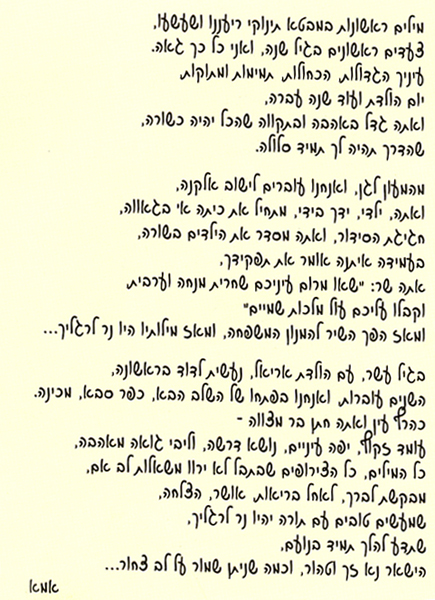 מילים ראשונות במבטא תינוקי ריעננו ושעשעו,
צעדים ראשונים בגיל שנה, ואני כל כך גאה.
עיניך הגדולות, הכחולות, תמימות ומתוקות
יום הולדת ועוד שנה עברה,
ואתה גדל באהבה ובתקווה שהכל יהיה כשורה,
שהדרך תהיה לך תמיד סלולה.
מהמעון לגן, ואנחנו עוברים לישוב אלקנה,
ואתה, ילדי, ידך בידי, מתחיל את כיתה א׳ בגאווה,
חגיגת הסידור, ואתה מסדר את הילדים בשורה,
בעמידה איתנה אומר את תפקידך,
אתה שר: "שאו מרום עיניכם שחרית מנחה וערבית
וקבלו עליכם עול מלכות שמיים"
ומאז הפך השיר להמנון המשפחה, ומאז מילותיו היו נר לרגליך...
בגיל עשר, עם הולדת אריאל, נעשית לדוד בראשונה,
השנים עוברות, ואנחנו בפתחו של השלב הבא, כפר סבא, מכינה.
כהרף עין ואתה חתן בר מצווה -
עומד זקוף, יפה עיניים, נושא דרשה, וליבי גואה מאהבה,
כל המילים, כל הצירופים שבתבל לא ירוו משאלות לב אם,
מבקשת לברך, לאחל בריאות, אושר, הצלחה,
שמעשים טובים עם תורה יהיו נר לרגליך,
שתדע להלך תמיד בנועם,
הישאר נא זך וטהור, וכמה שניתן שמור על לב צחור...
אמא